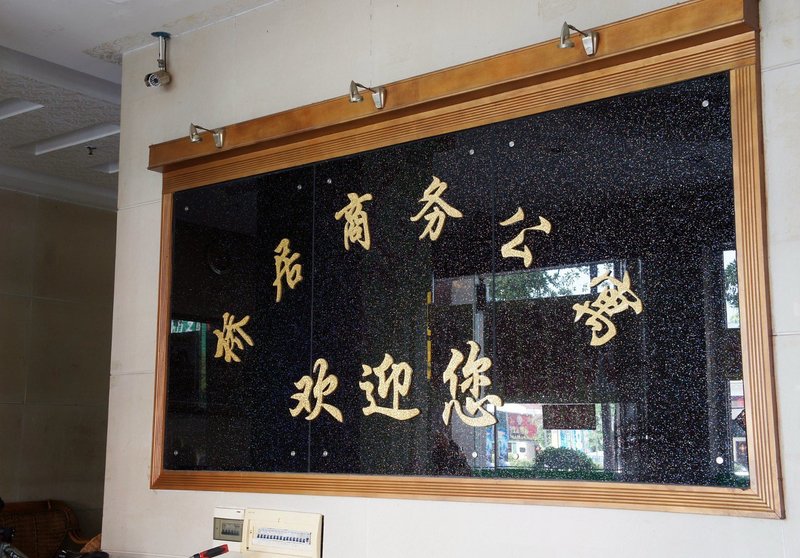 居商务公寓
欢迎您